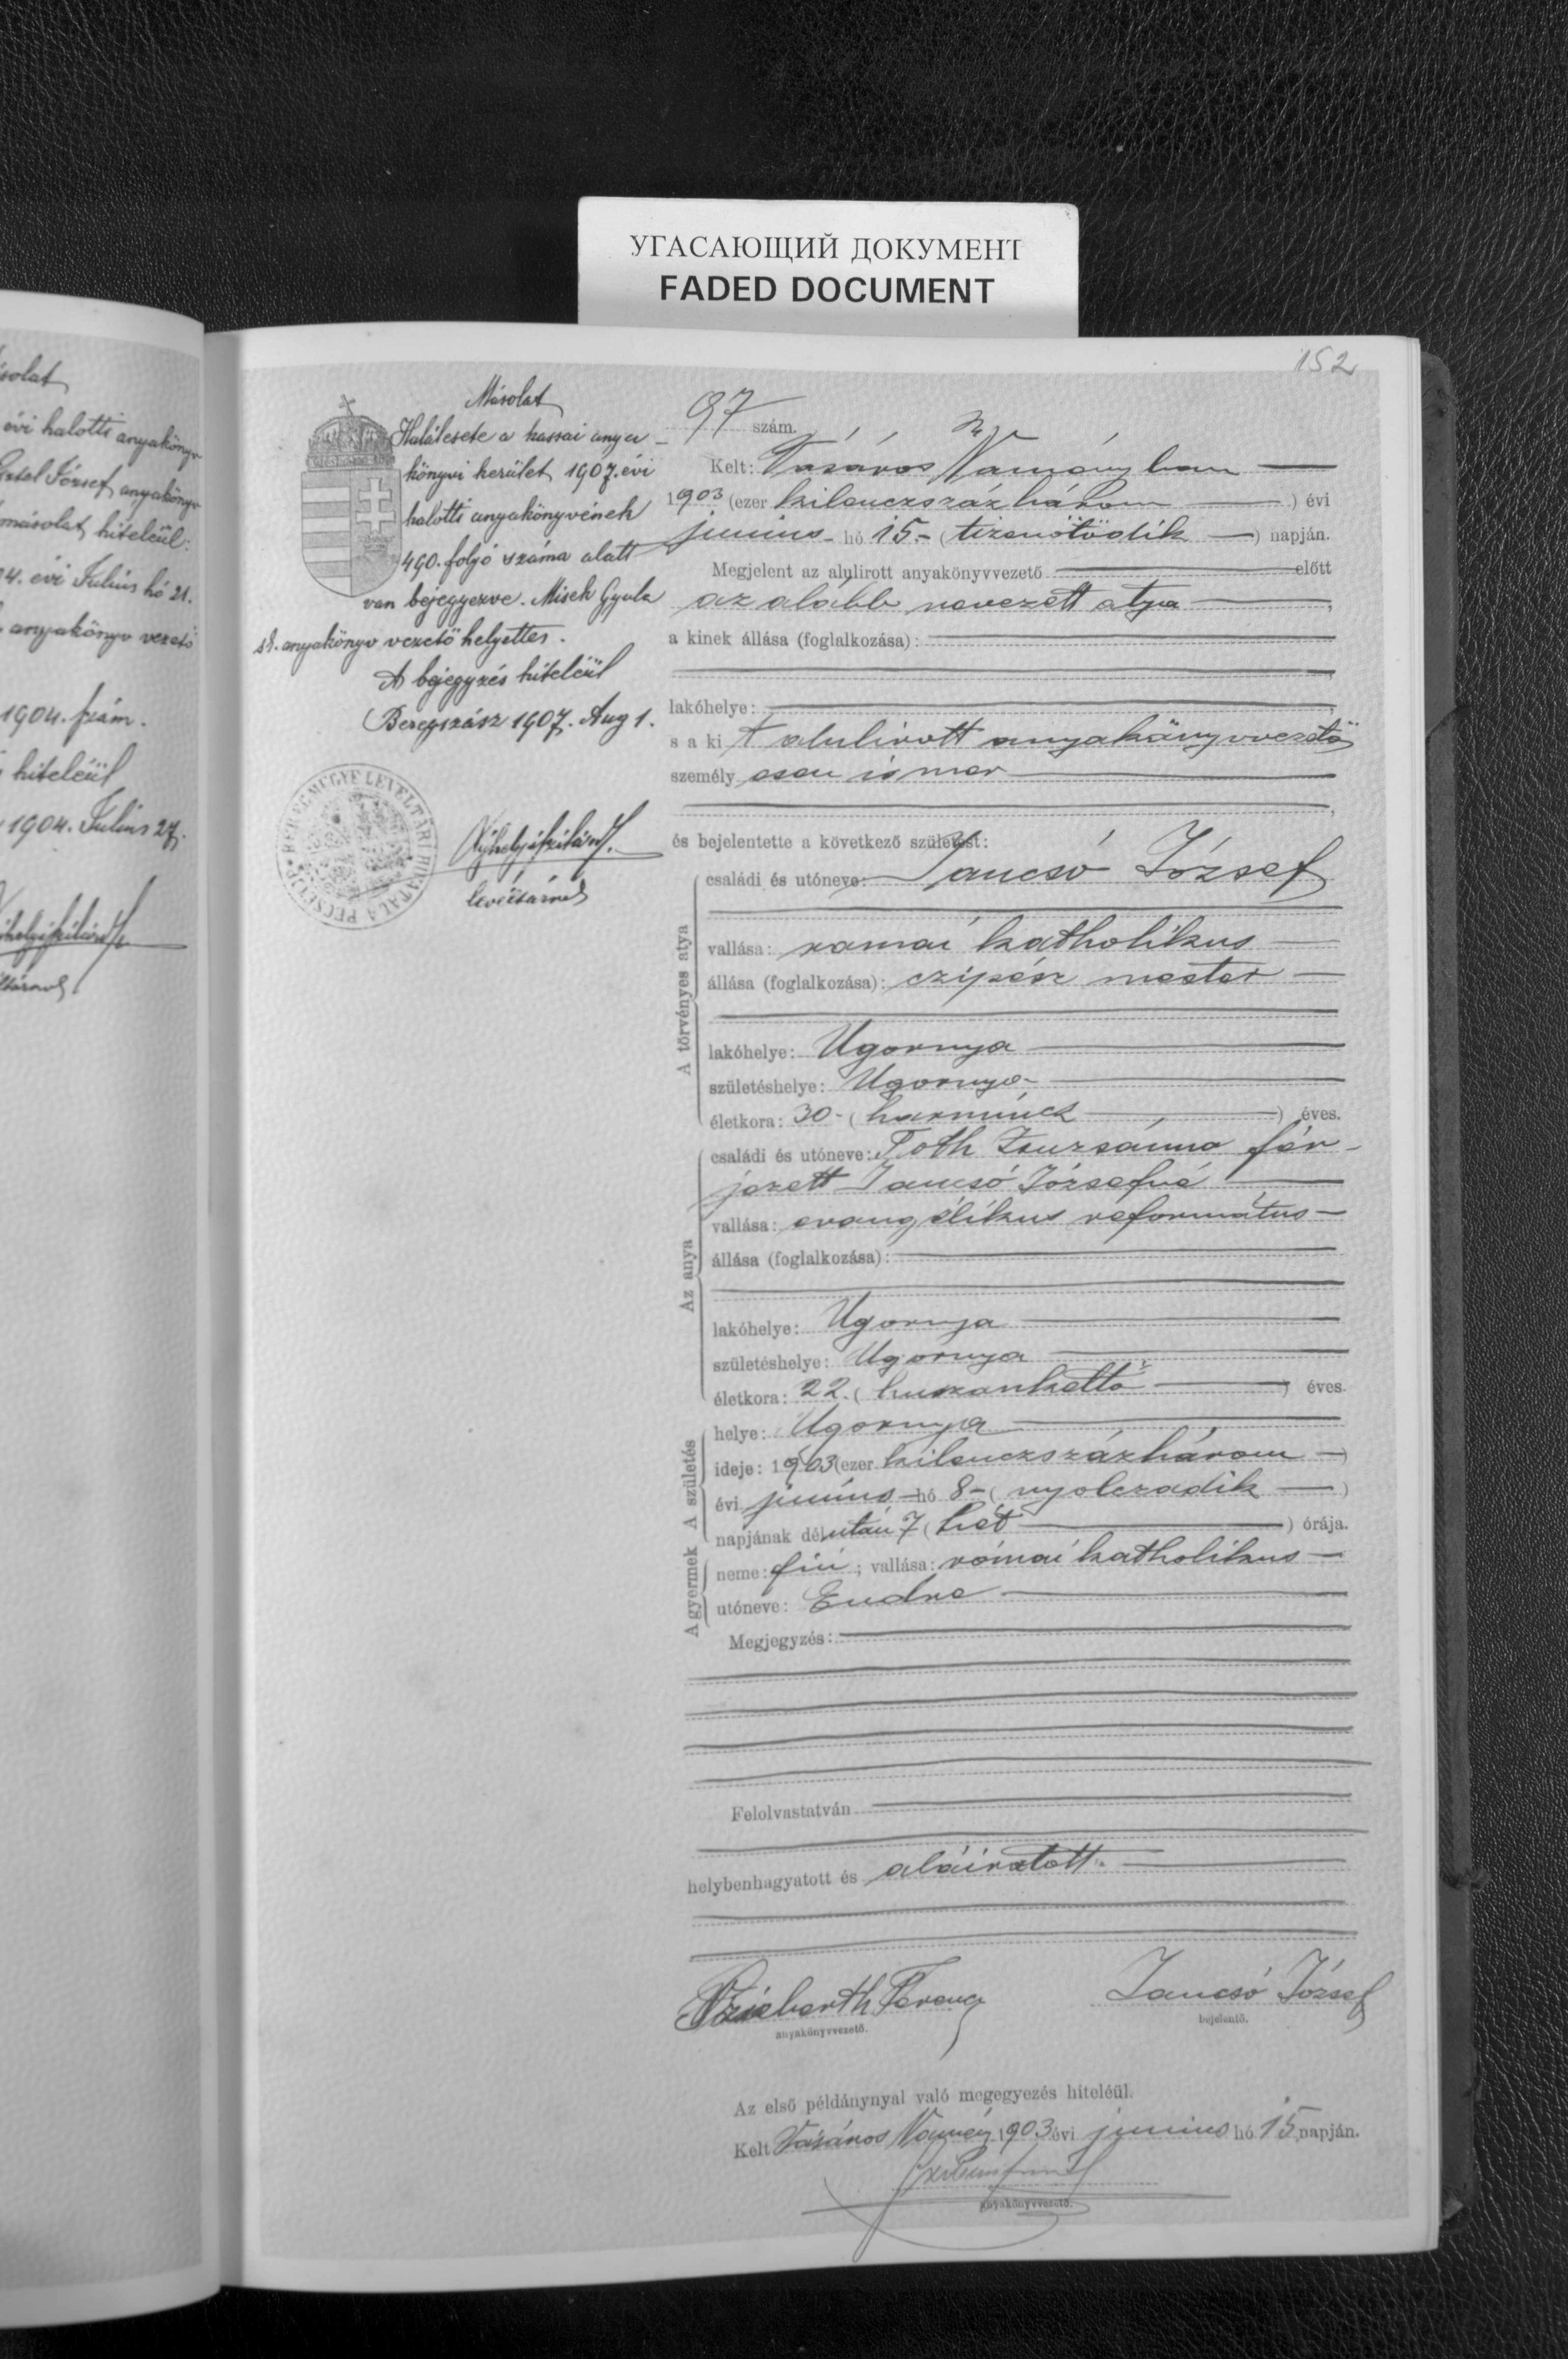 УГАСАЮЩИЙ ДОКУМЕНТ
FADED DOCUMENT
152
évi halotti anyakönyv
József anyakönyv
másolat hiteléül:
évi Julius hó 21.
anyakönyv vezető
1904. szám.
hiteléül
1904. Julius 27.
Másolat
Halálesete a kassai anya-
könyvi kerület 1907. évi
halotti anyakönyvének
490. folyó száma alatt
van bejegyezve. Misek Gyula
s.k. anyakönyv vezető helyettes.
A bejegyzés hiteléül
Beregszász 1907. Aug 1.
levéltárnok
97 szám.
Kelt: Vásáros Naményban
1903 (ezer kilenczszázhárom ) évi
junius hó 15.- ( tizenötödik ) napján.
Megjelent az alulirott anyakönyvvezető előtt
az alább nevezett atya ,
a kinek állása (foglalkozása):
lakóhelye:
s a ki t alulirott anyakönyvvezető
személyesen ismer
és bejelentette a következő születést:
A törvényes atya
családi és utóneve: Jancsó József
vallása: romai katholikus
állása (foglalkozása): czipész mester
lakóhelye: Ugornya
születéshelye: Ugornya
életkora: 30- ( harmincz ) éves.
Az anya
családi és utóneve: Toth Zsuzsánna fér-
jezett Jancsó Józsefné
vallása: evangélikus református
állása (foglalkozása):
lakóhelye: Ugornya
születéshelye: Ugornya
életkora: 22. ( huszonkettő ) éves.
A születés
helye: Ugornya
ideje: 1903 (ezer kilenczszázhárom )
évi junius hó 8- ( nyolczadik )
napjának délután 7 ( hét ) órája.
A gyermek
neme: fiú ; vallása: római katholikus
utóneve: Endre
Megjegyzés:
Felolvastatván
helybenhagyatott és aláiratott.
Ferencz
anyakönyvvezető.
Jancsó József
bejelentő.
Az első példánynyal való megegyezés hiteléül.
Kelt Vásáros Namény 1903 évi junius hó 15 napján.
anyakönyvvezető.